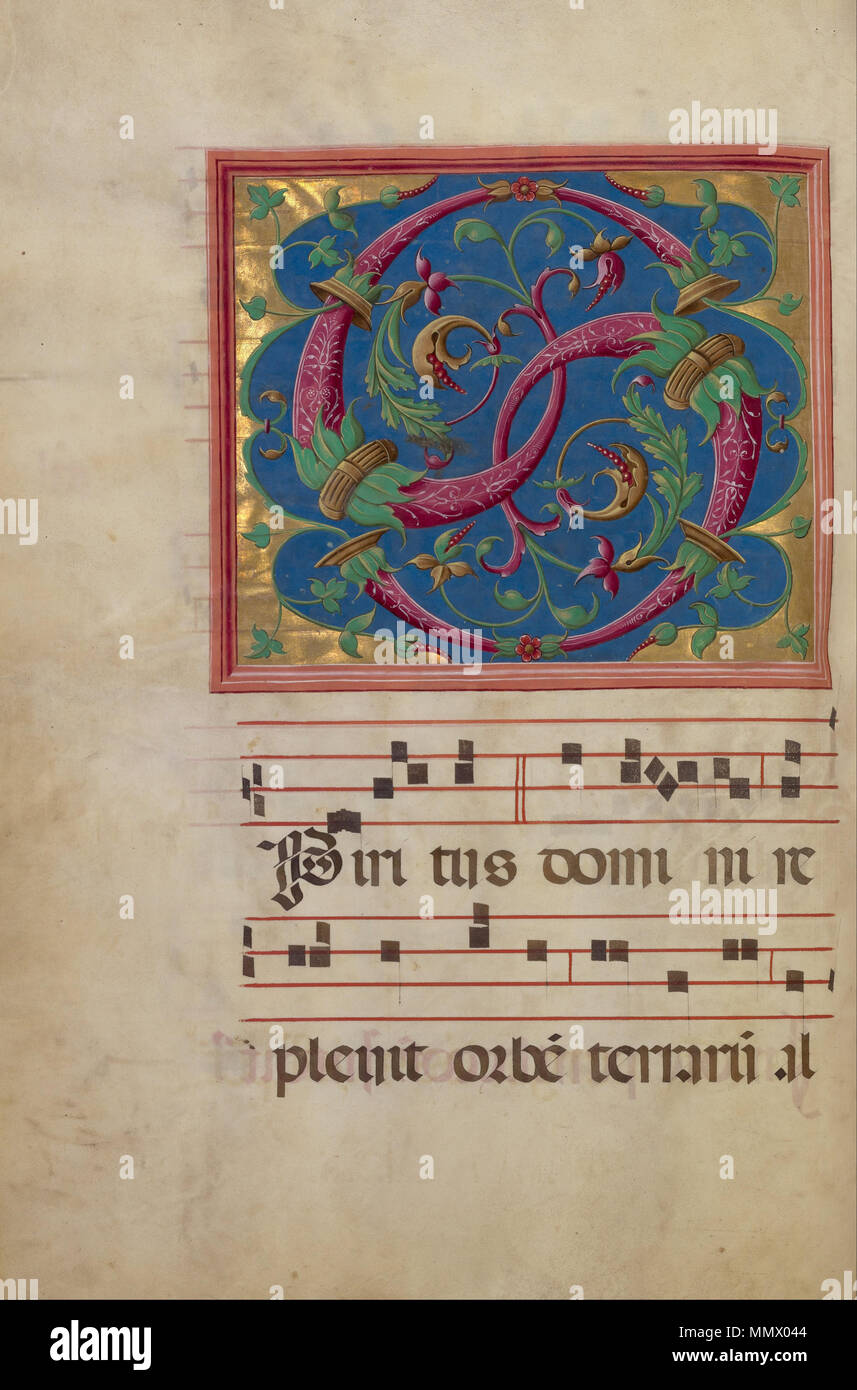 S
Piri tus domi ni re
plevit orbē terrarū al
alamy
Image ID: MMX044
www.alamy.com